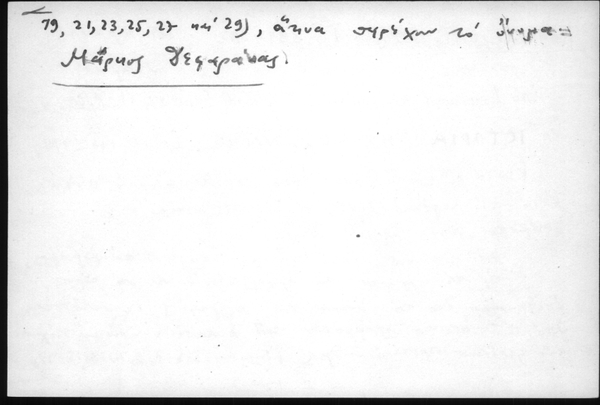 19, 21, 23, 25, 27 καί 29), ἅτινα παρέχουν τό ὄνομα:
Μάρκος Δεφαράνας.